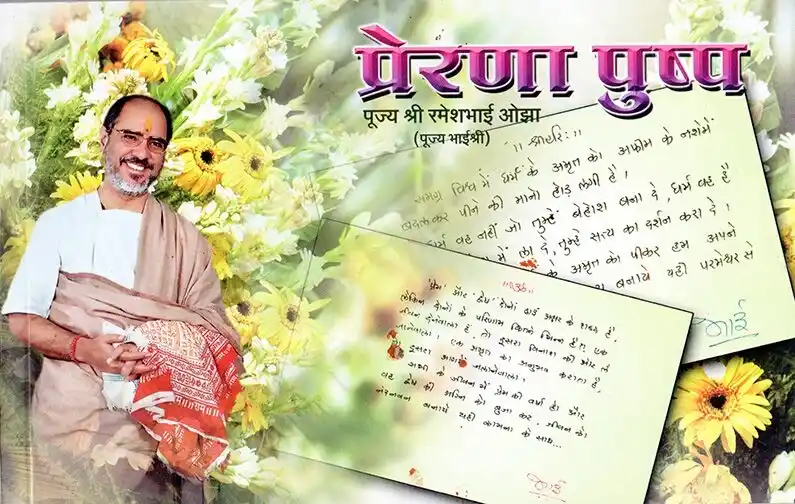 प्रेरणा पुष्प
पूज्य श्री रमेशभाई ओझा
(पूज्य भाईश्री)
॥ श्रीहरिः ॥
समग्र विश्व में धर्म के अमृत को अफीम के नशेमें
बदलकर पीने की मानो होड़ लगी है।
धर्म वह नहीं जो तुम्हें बेहोश बना दे, धर्म वह है
में ला दे, तुम्हें सत्य का दर्शन करा दे।
के अमृत को पीकर हम अपने
बनाये यही परमेश्वर से
भाई
'प्रेम' और 'द्वेष' दोनों ढाई अक्षर के शब्द हैं,
लेकिन दोनों के परिणाम कितने भिन्न हैं! एक
जीवन देनेवाला है, तो दूसरा विनाश की ओर ले
जानेवाला। एक अमृत का अनुभव कराता है,
दूसरा आग में जलानेवाला।
सभी के जीवन में प्रेम की वर्षा हो और
वह द्वेष की अग्नि को बुझा कर, जीवन को
नंदनवन बनाये यही कामना के साथ...
भाई